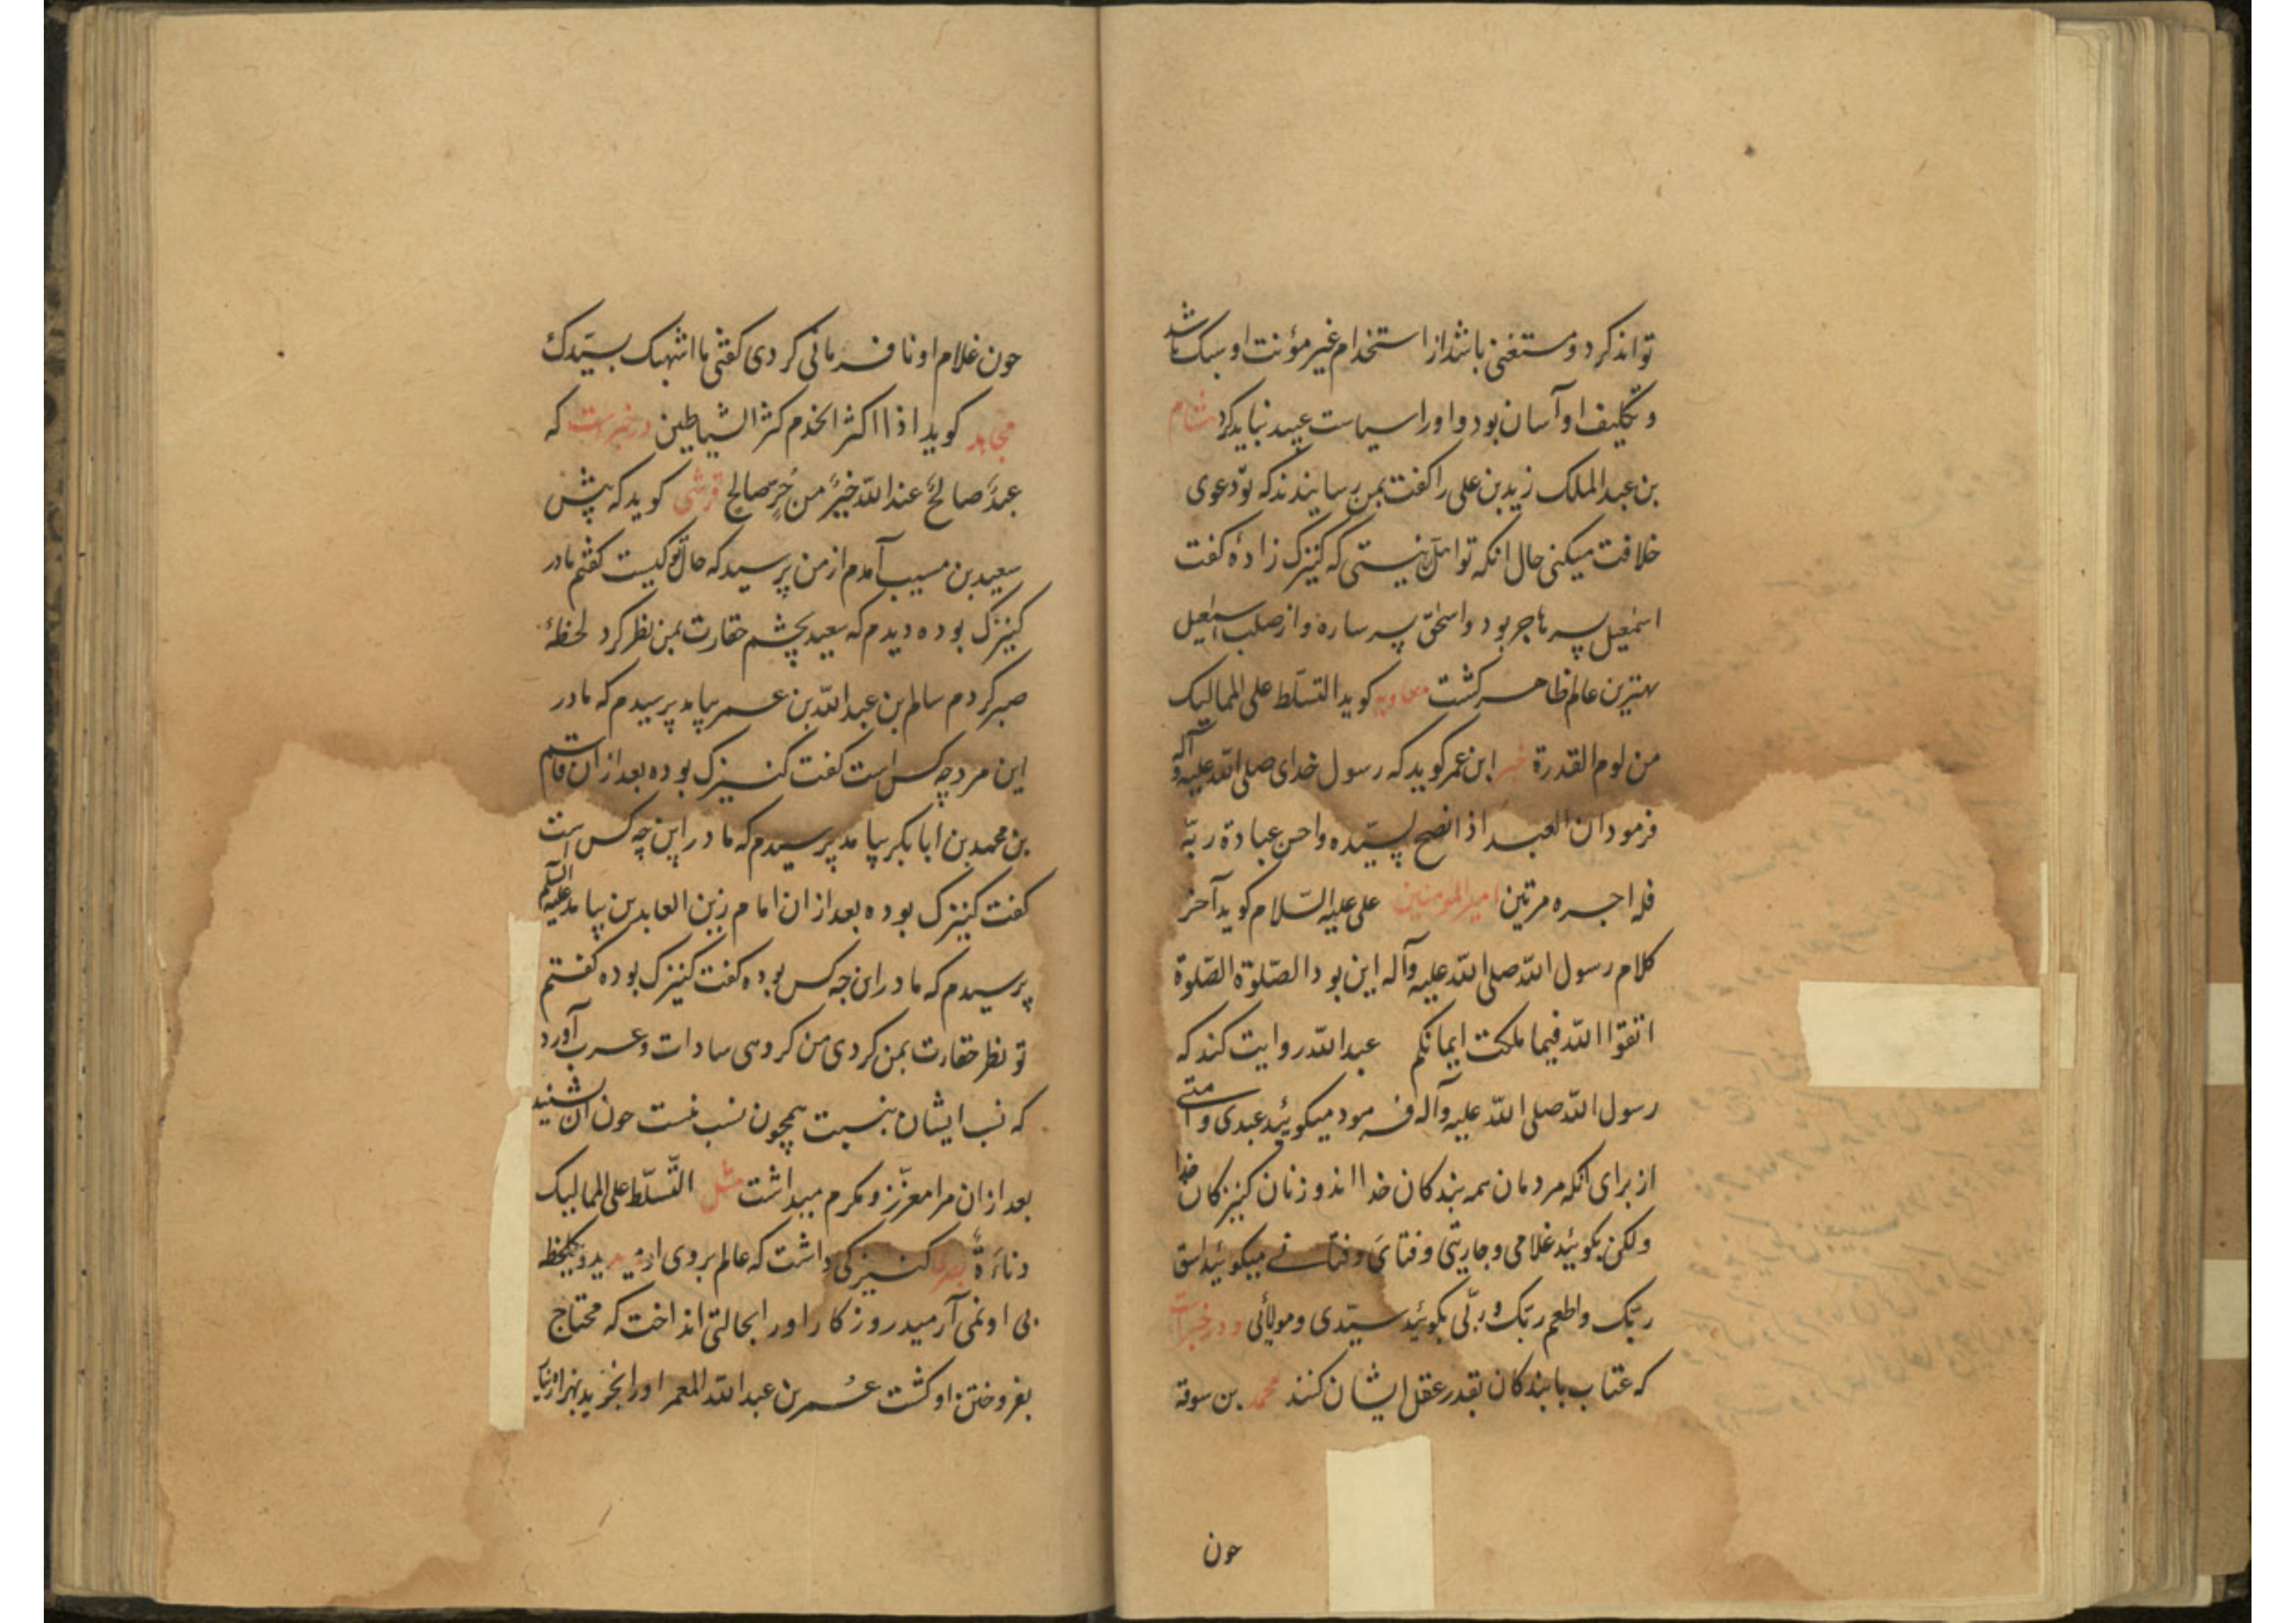 تواند کرد و مستغنی باشد از استخدام غیر مؤنت او سبک باشد
و تکلیف او آسان بود و او را سیاست عبید نباید کرد هشام
بن عبد الملک زید بن علی را گفت بمن رسانیدند که تو دعوی
خلافت میکنی حال انکه تو اهل آن نیستی که کنیزک زادهٔ گفت
اسمٰعیل پسر هاجر بود و اسحٰق پسر ساره و از صلب اسمٰعیل
بهترین عالم ظاهر کشت معاویه کوید التسلّط علی الممالیک
من لوم القدرة خبر ابن عمر کوید که رسول خدای صلی الله علیه و آله
فرمود ان العبد اذا نصح لسیّده و احسن عبادة ربّه
فله اجره مرتین امیر المومنین علی علیه السّلام کوید آخر
کلام رسول الله صلی الله علیه وآله این بود الصّلوة الصّلوة
اتقوا الله فیما ملکت ایمانکم عبد الله روایت کند که
رسول الله صلی الله علیه وآله فرمود میکوئید عبدی و امتی
از برای آنکه مردمان همه بندکان خدا اند و زنان کنیزکان خدا
ولکن بکوئید غلامی و جاریتی و فتای و فتاتی میکوئید اسق
ربّک و اطعم ربّک و ربّی بکوئید سیّدی و مولائی و در خبر است
که عتاب با بندکان بقدر عقل ایشان کنند محمد بن سوقه
حون
حون غلام او نافرمانی کردی کفتی ما اشبهک بسیّدک
مجاهد کوید اذا اکثر الخدم کثر الشیاطین در خبر است که
عبدٌ صالحٌ عند الله خیرٌ من حُرٍّ صالح قرشی کوید که پیش
سعید بن مسیب آمدم از من پرسید که خال تو کیست کفتم مادر
کنیزک بوده دیدم که سعید بچشم حقارت بمن نظر کرد لحظهٔ
صبر کردم سالم بن عبد الله بن عمر بیامد پرسیدم که مادر
این مرد چه کس است کفت کنیزک بوده بعد از ان قاسم
بن محمد بن ابا بکر بیامد پرسیدم که مادر این چه کس است
کفت کنیزک بوده بعد از ان امام زین العابدین بیامد علیه السلم
پرسیدم که مادر این چه کس بوده کفت کنیزک بوده کفتم
تو نظر حقارت بمن کردی من کروهی سادات و عرب آورد
که نسب ایشان بنسبت همچون نسب منست حون آن شنید
بعد از ان مرا معزّز و مکرم میداشت مثل التّسلّط علی الممالیک
دناءَةٌ کنیزکی داشت که عالم بروی او میدید و یکلحظه
بی او نمی آرمید روزکار او را بحالتی انداخت که محتاج
بفروختن او کشت عُمر بن عبد الله المعمر او را بخرید بهزار دینار